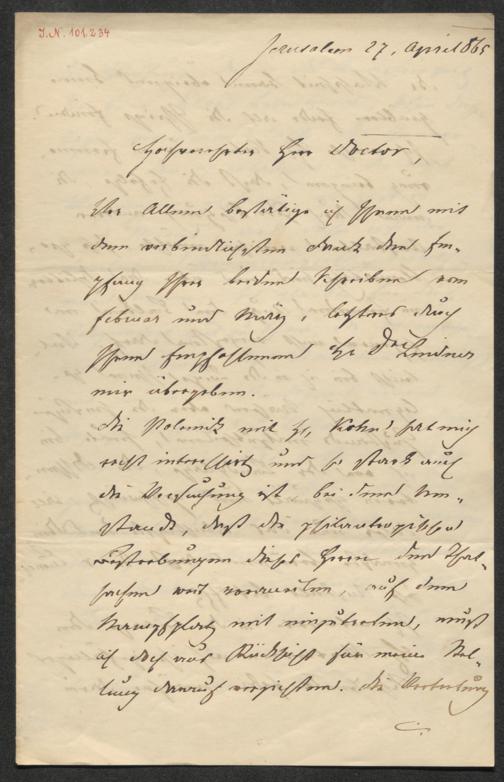 J.N. 101.234
Jerusalem 27. April 865
Hochverehrter Herr Doctor,
Vor Allem bestätige ich Ihnen mit
dem verbindlichsten Dank den Em-
pfang Ihrer beiden Schreiben vom
Februar und März, letzteres durch
Ihren Empfohlenen Hr Dor Lindner
mir übergeben.
Die Polemik mit H. Kohn hat mich
recht interessirt und so stark auch
die Versuchung ist bei dem Um-
stande, daß die philantropischen
Bestrebungen dieses Herrn den That-
sachen weit vorauseilen, auf dem
Kampfplatz mit einzutreten, muß
ich doch aus Rücksicht für meine Stel-
lung darauf verzichten. Die Verbreitung